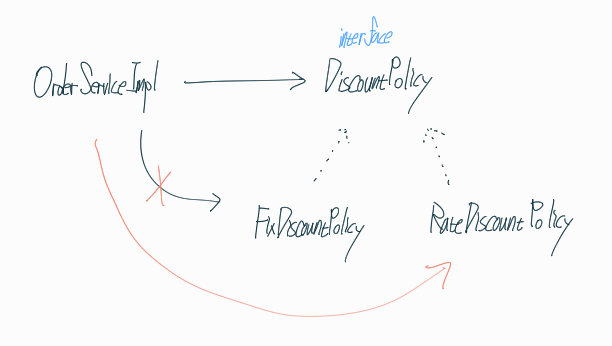 interface
OrderServiceImpl
DiscountPolicy
FixDiscountPolicy
RateDiscountPolicy